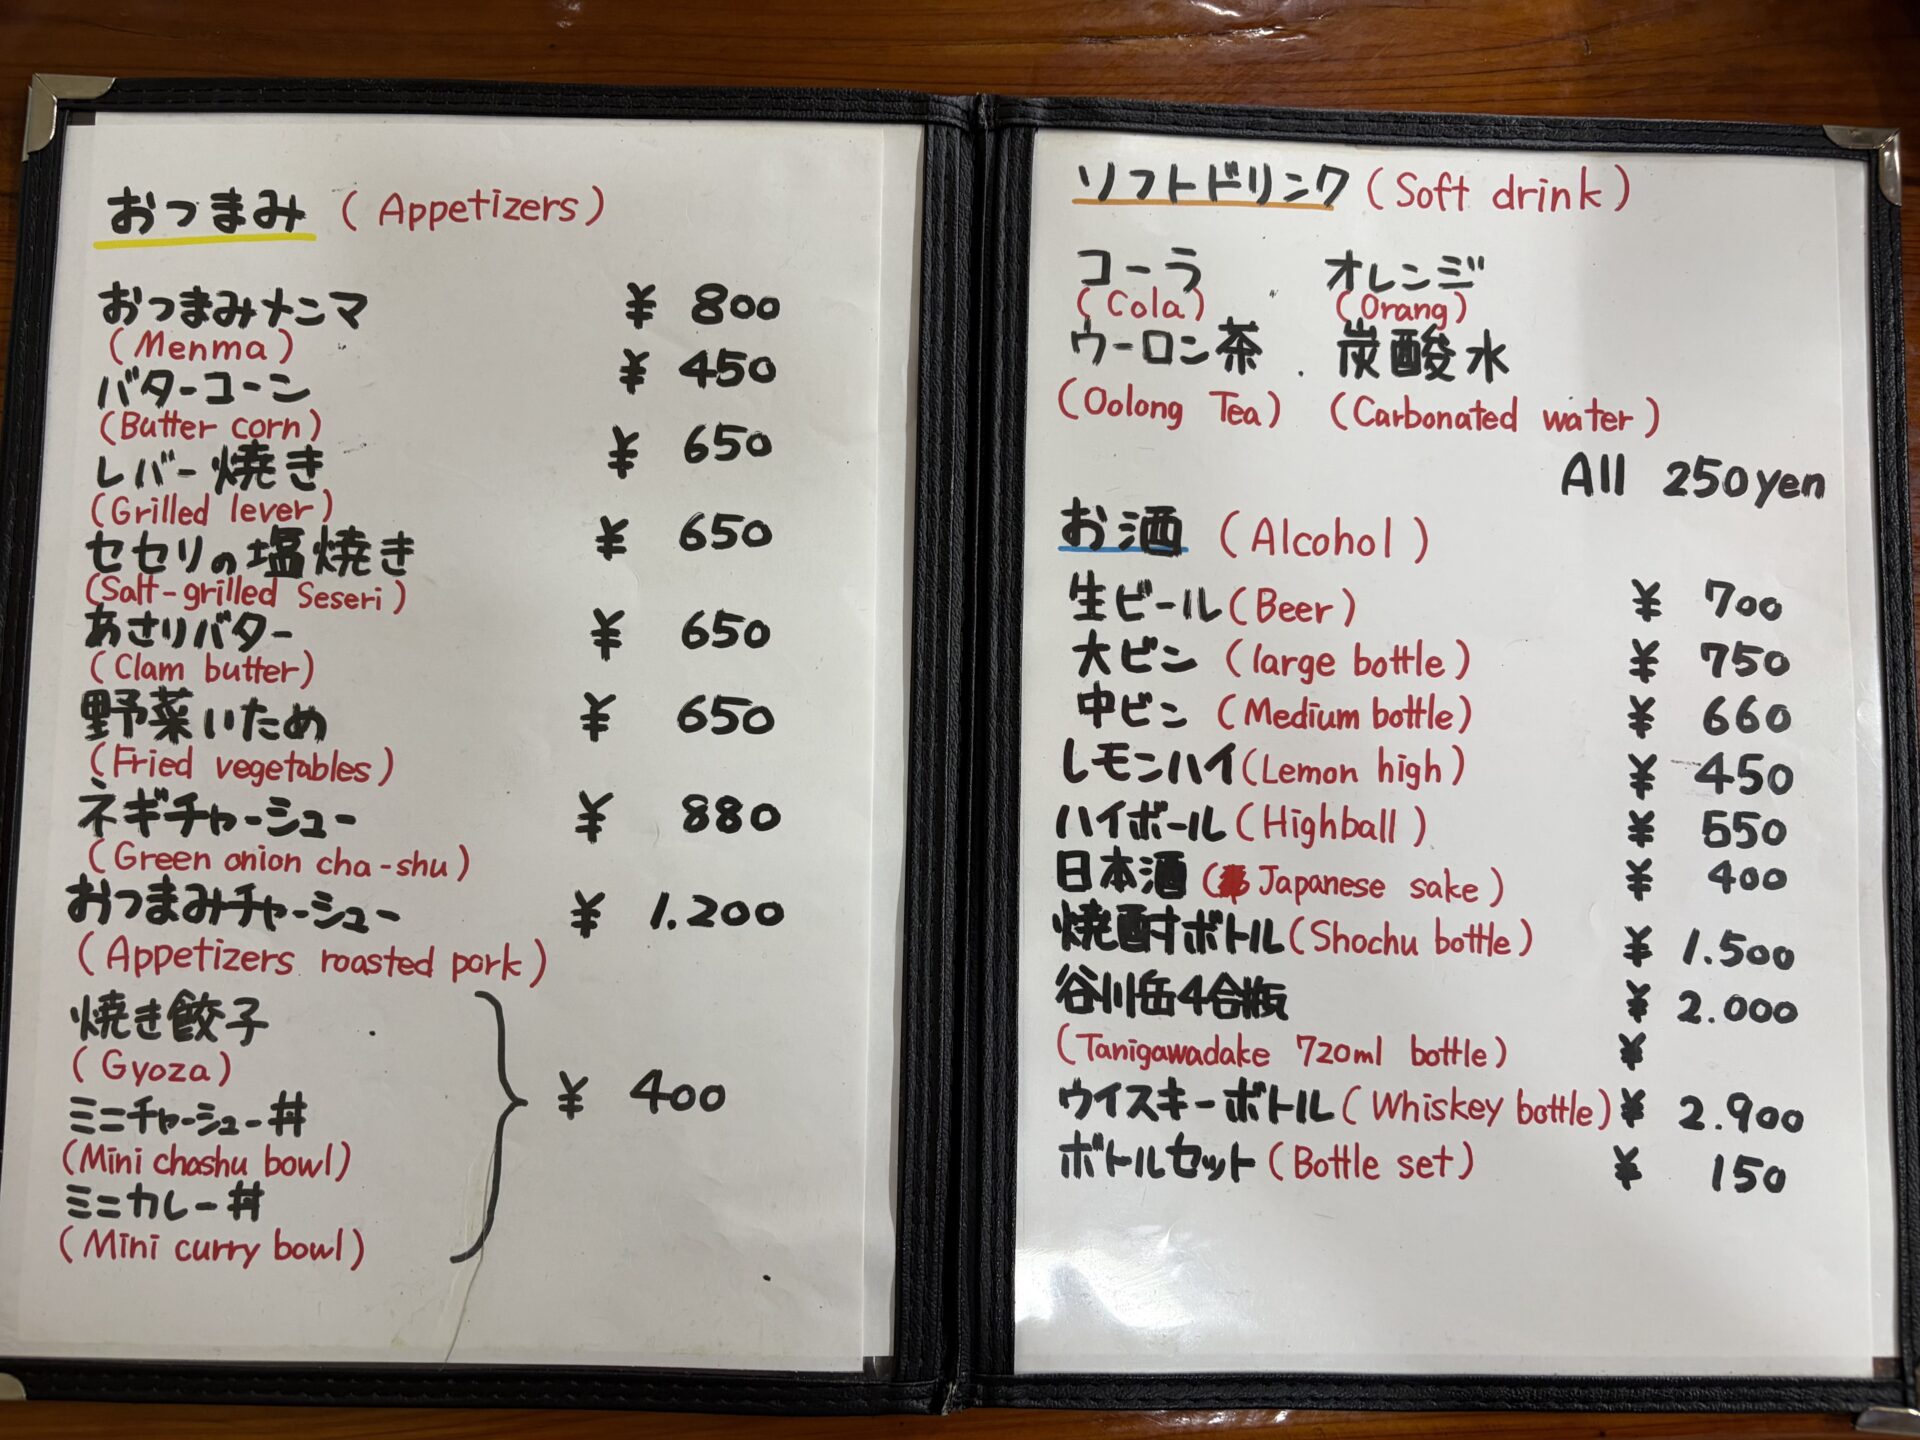 おつまみ (Appetizers)
おつまみメンマ ¥ 800
(Menma)
バターコーン ¥ 450
(Butter corn)
レバー焼き ¥ 650
(Grilled lever)
セセリの塩焼き ¥ 650
(Salt-grilled Seseri)
あさりバター ¥ 650
(Clam butter)
野菜いため ¥ 650
(Fried vegetables)
ネギチャーシュー ¥ 880
(Green onion cha-shu)
おつまみチャーシュー ¥ 1.200
(Appetizers roasted pork)
焼き餃子
(Gyoza)
ミニチャーシュー丼 ¥ 400
(Mini chashu bowl)
ミニカレー丼
(Mini curry bowl)
ソフトドリンク (Soft drink)
コーラ オレンジ
(Cola) (Orang)
ウーロン茶 . 炭酸水
(Oolong Tea) (Carbonated water)
All 250yen
お酒 (Alcohol)
生ビール (Beer) ¥ 700
大ビン (large bottle) ¥ 750
中ビン (Medium bottle) ¥ 660
レモンハイ (Lemon high) ¥ 450
ハイボール (Highball) ¥ 550
日本酒 (Japanese sake) ¥ 400
焼酎ボトル (Shochu bottle) ¥ 1.500
谷川岳4合瓶 ¥ 2.000
(Tanigawadake 720ml bottle) ¥
ウイスキーボトル (Whiskey bottle) ¥ 2.900
ボトルセット (Bottle set) ¥ 150